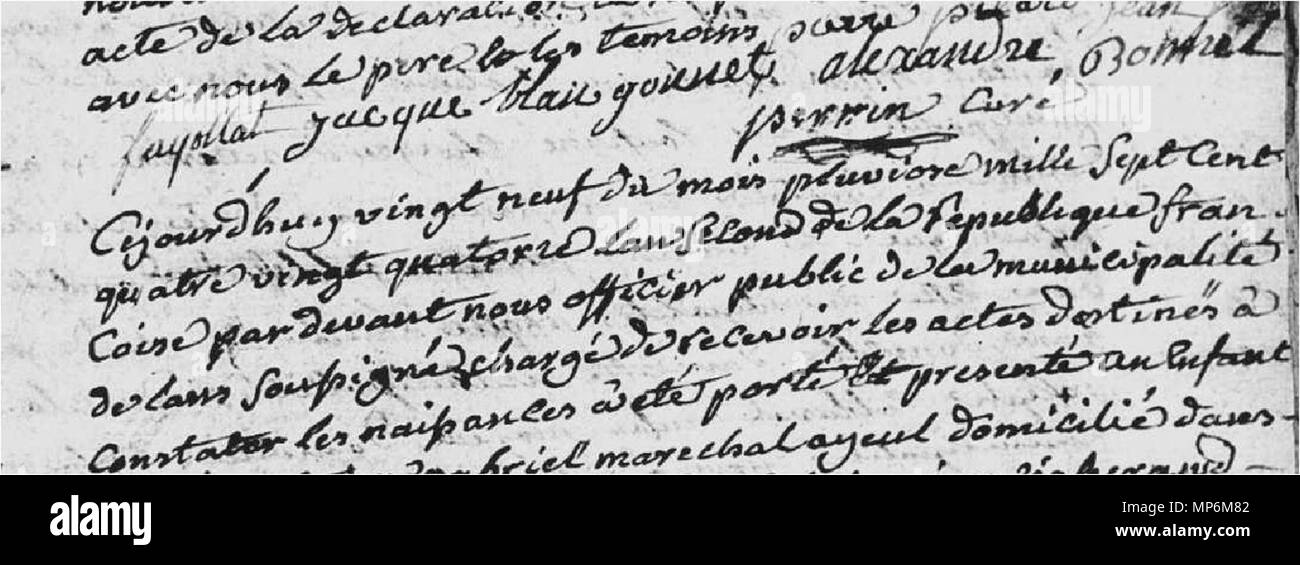 acte de la declaration
avec nous le pere et les temoins pierre picard jean
fayollat jacque blain gounet alexandre Bonnet
perrin Curé
Cejourdhuy vingt neuf du mois pluviose mille Sept Cent
quatre vingt quatorze lan Second de la Republique fran
Coise par devant nous officier public de la municipalité
de lans Soussigné chargé de recevoir les actes destinés à
Constater les naissances à été porté Et presenté un Enfant
gabriel marechal ayeul domicilié dans
alamy
Image ID: MP6M82
www.alamy.com